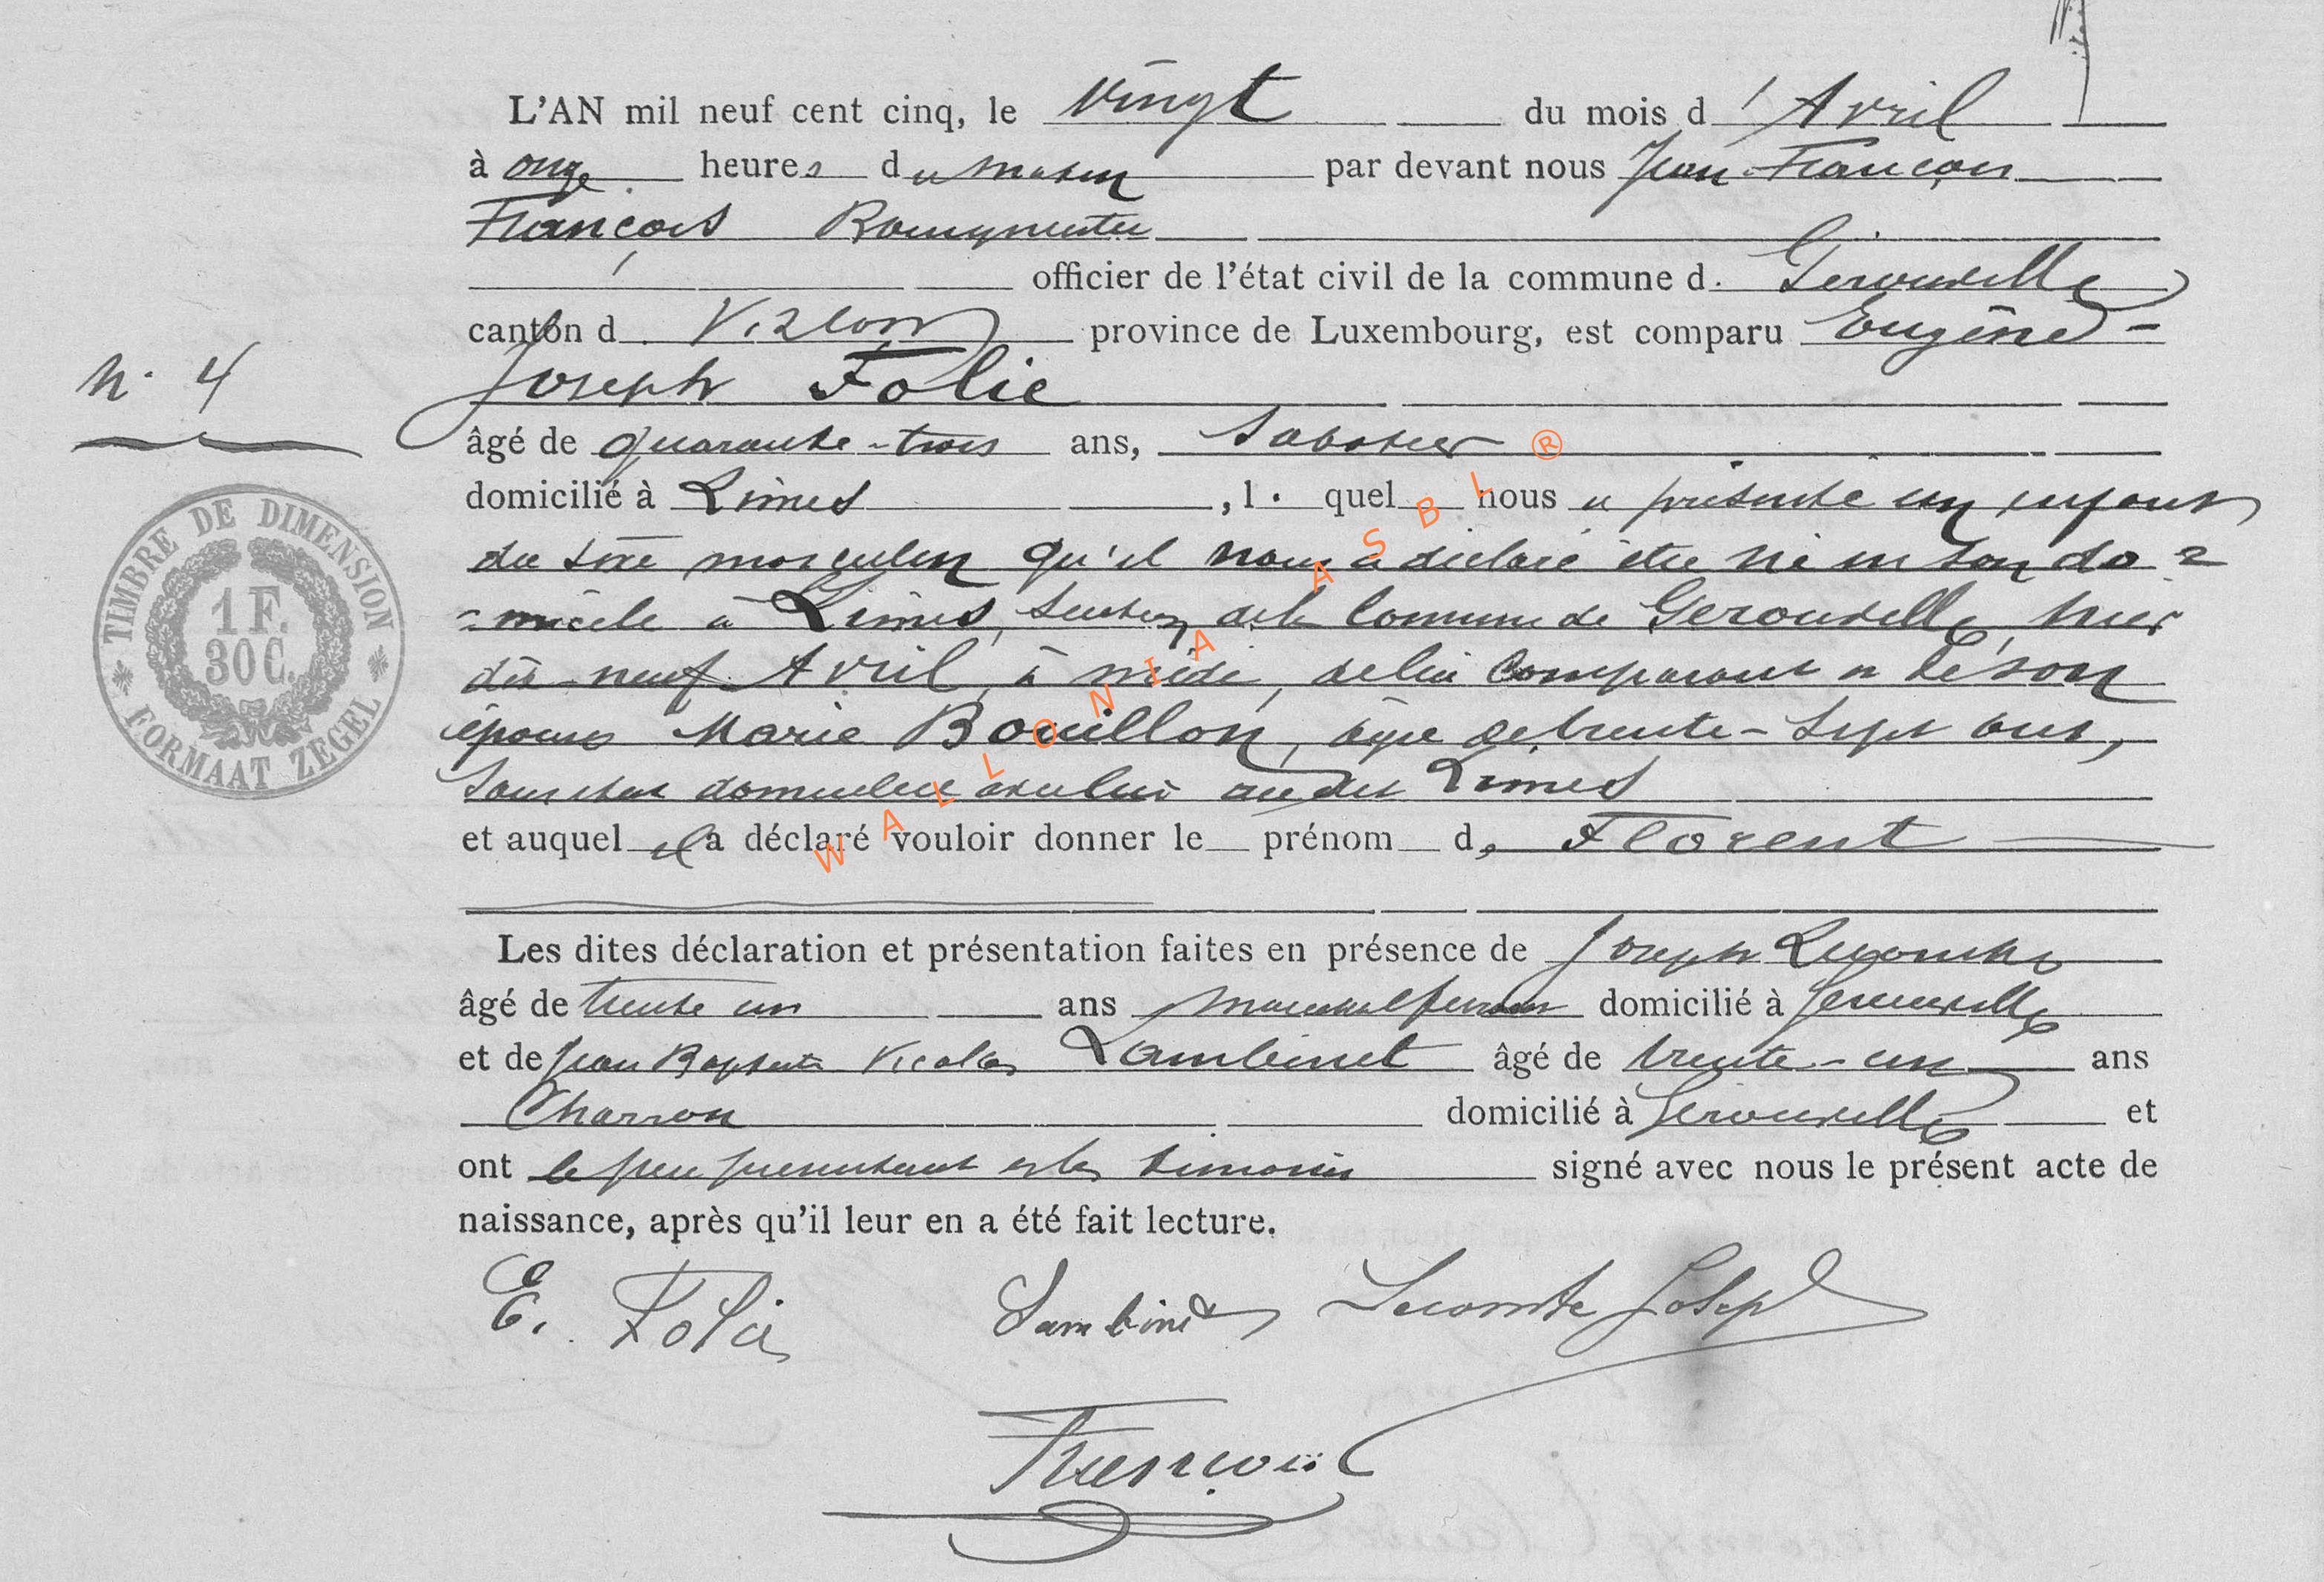 L'AN mil neuf cent cinq, le Vingt du mois d'Avril
à onze heures du matin par devant nous Jean François
François
officier de l'état civil de la commune d. Gérouville
canton d. Virton province de Luxembourg, est comparu Eugène-
Joseph Folie
N. 4
âgé de quarante-trois ans, Sabotier
domicilié à Limes, l. quel nous a présenté un enfant
du sexe masculin qu'il nous a déclaré être né en son do=
=micile à Limes, section de la commune de Gérouville, hier
dix-neuf Avril, à midi, de lui comparant et de son
épouse Marie Bouillon, âgée de trente-sept ans,
domiciliée avec lui audit Limes
et auquel il a déclaré vouloir donner le prénom de Florent
Les dites déclaration et présentation faites en présence de Joseph Lecomte
âgé de trente un ans maréchal ferrant domicilié à Gérouville
et de Jean Baptiste Nicolas Lambinet âgé de trente-un ans
Charron domicilié à Gérouville et
ont le père présentant et les témoins signé avec nous le présent acte de
naissance, après qu'il leur en a été fait lecture.
E. Folie Lambinet Lecomte Joseph
François
TIMBRE DE DIMENSION
1 F.
30 C.
FORMAAT ZEGEL
WALLONIA ASBL ®